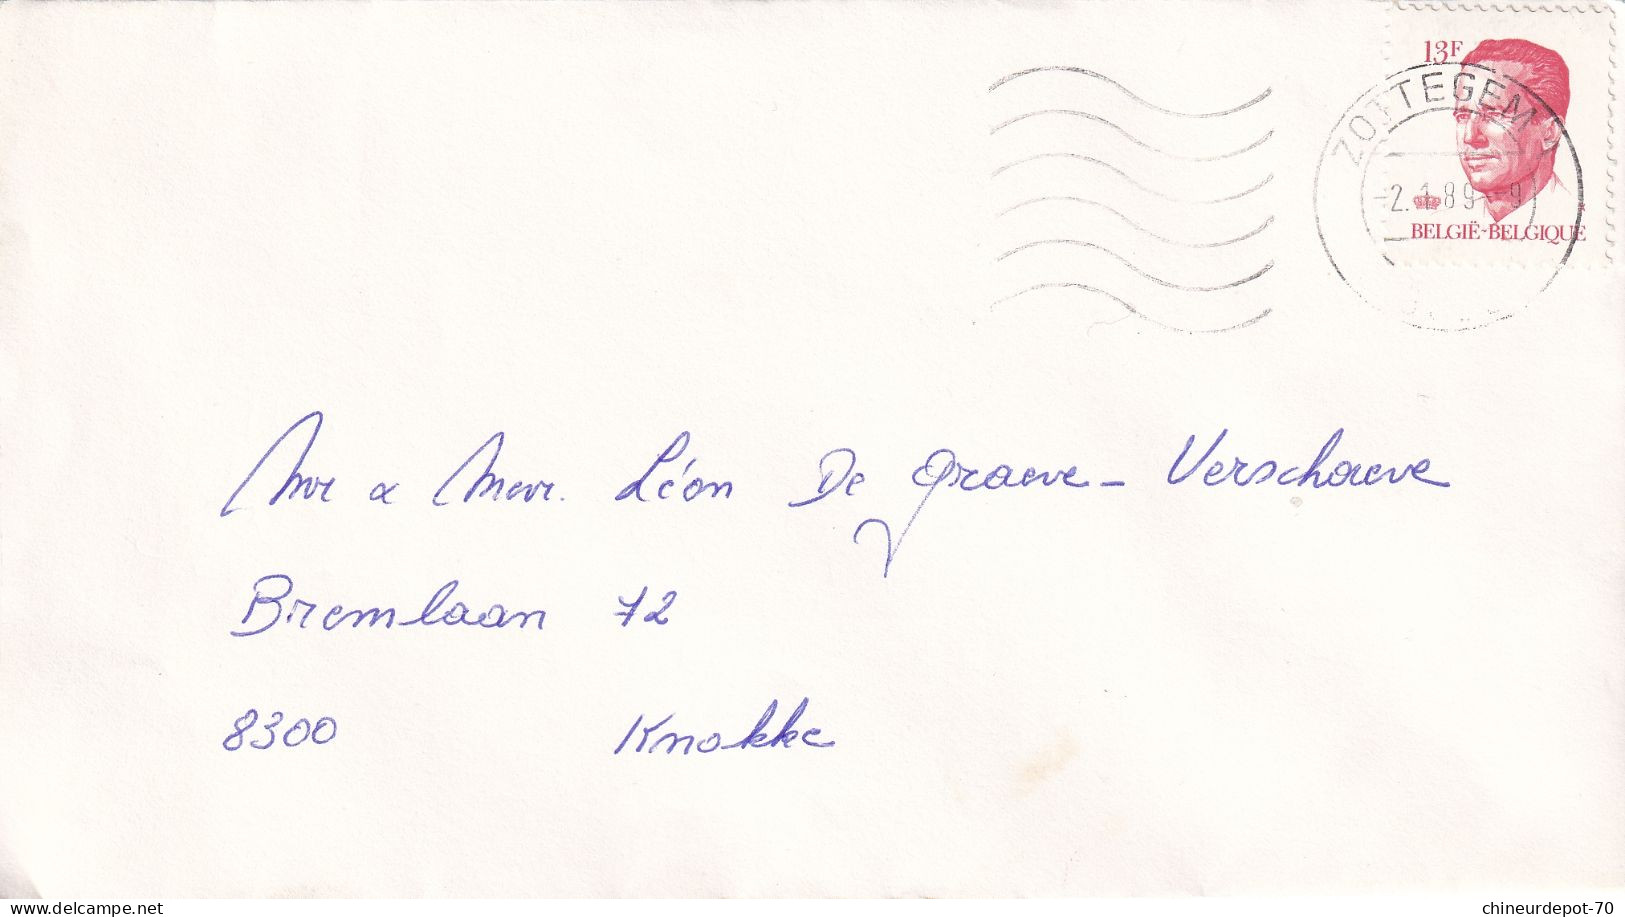 13F
ZOTTEGEM
-2.1.89--9
BELGIË-BELGIQUE
Mr & Mevr. Léon De Graeve - Verschaeve
Bremlaan 72
8300 Knokke
www.delcampe.net
chineurdepot-70